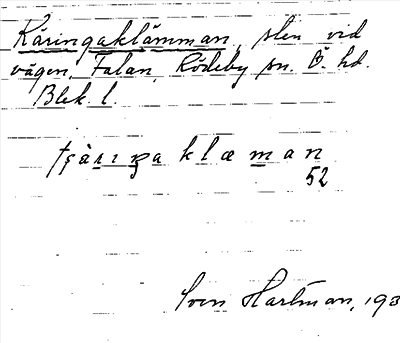 Käringaklämman, sten vid
vägen, Falan, Rödeby sn. Ö. hd.
Blek. l.
klæman
52
Sven Hartman, 193